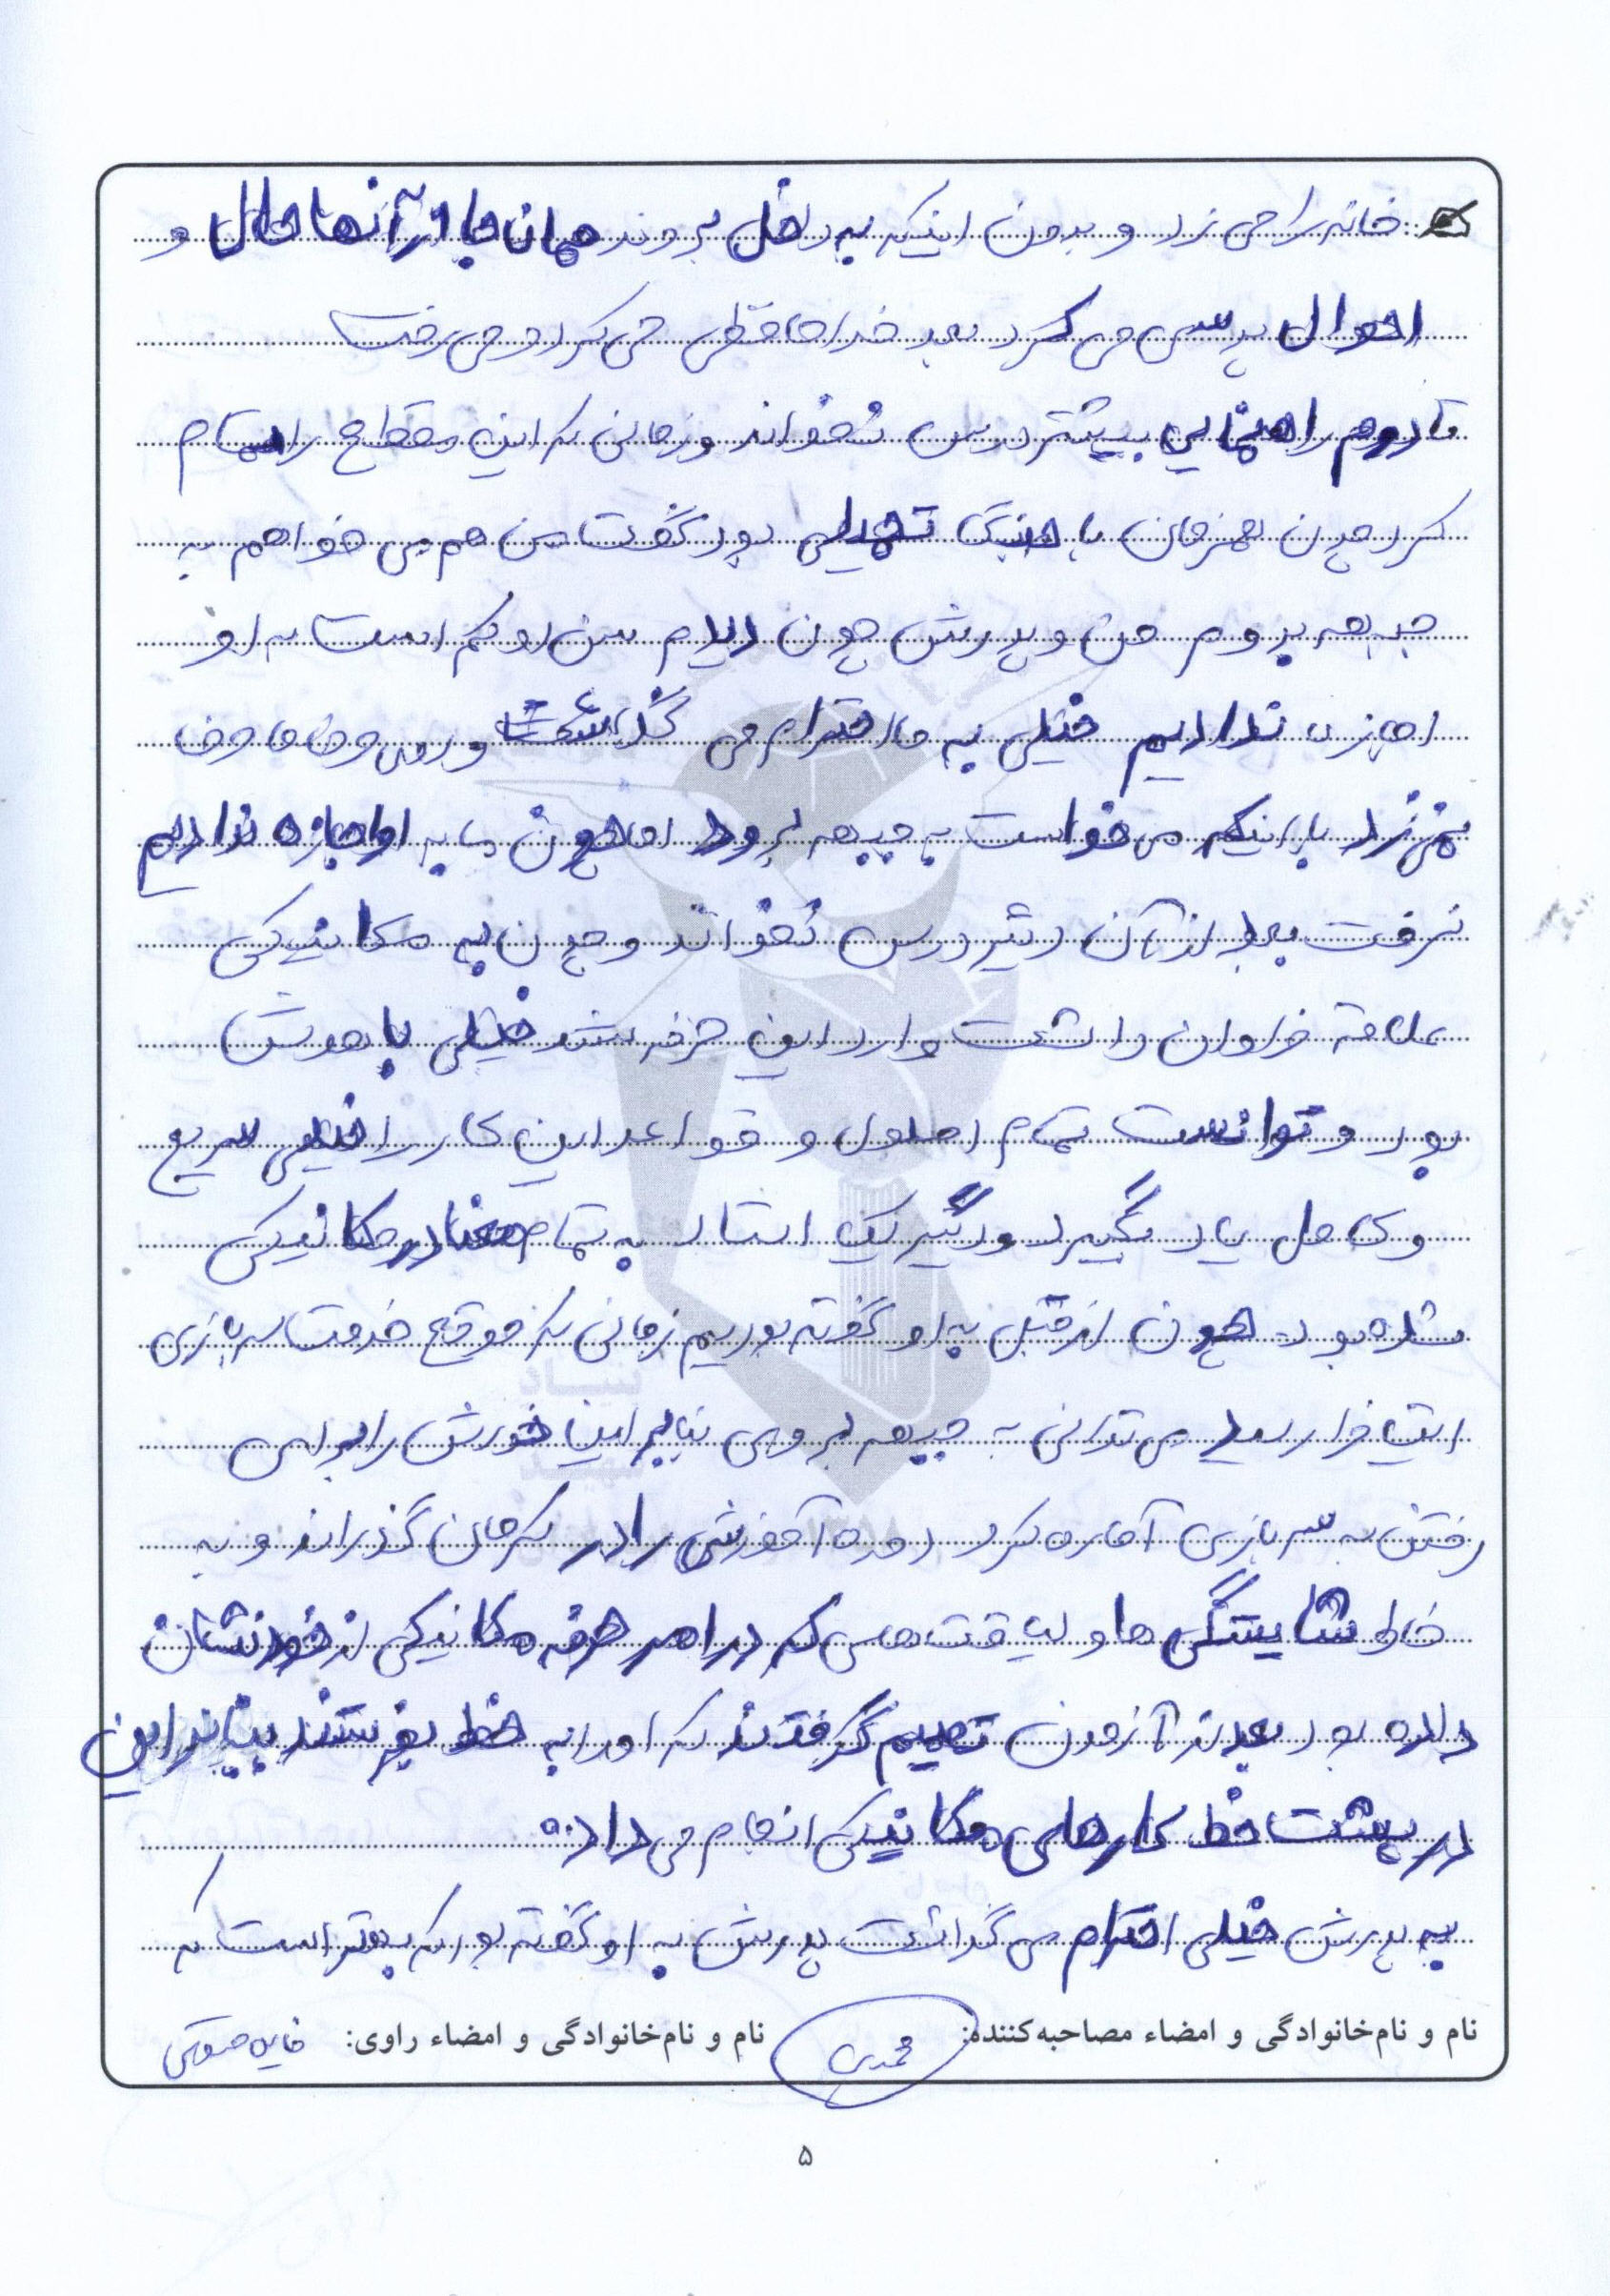 خانه را می زد و بدون اینکه به داخل برود همان جا از آنها حال و
احوال پرسی می کرد بعد خداحافظی می کرد و می رفت
تا دوم راهنمایی بیشتر درس نخواند و زمانی که این مقطع را تمام
کرد چون همزمان با جنگ تحمیلی بود گفت من هم می خواهم به
جبهه بروم من و پدرش چون دیدیم سن او کم است به او
اجازه ندادیم خیلی به ما احترام می گذاشت و روی حرف ما حرف
نمی زد با اینکه می خواست به جبهه برود اما چون ما به او اجازه ندادیم
نرفت بعد از آن دیگر درس نخواند و چون به مکانیکی
علاقه فراوان داشت وارد این حرفه شد خیلی باهوش
بود و توانست تمام اصول و قواعد این کار را خیلی سریع
و کامل یاد بگیرد و دیگر یک استاد به تمام معنا در مکانیکی
شده بود. چون از قبل به او گفته بودیم زمانی که موقع خدمت سربازی
ات فرا رسید می توانی به جبهه بروی بنابراین خودش را برای
رفتن به سربازی آماده کرد دوره آموزشی را در کرمان گذراند و به
خاطر شایستگی ها و لیاقت هایی که در امر حرفه مکانیکی از خود نشان
داده بود بعد از آزمون تصمیم گرفتند که او را به خط بفرستند بنابراین
در پشت خط کارهای مکانیکی انجام می داد.
به پدرش خیلی احترام می گذاشت پدرش به او گفته بود که بهتر است که
نام و نام‌خانوادگی و امضاء مصاحبه‌کننده: محمدی نام و نام‌خانوادگی و امضاء راوی:
۵